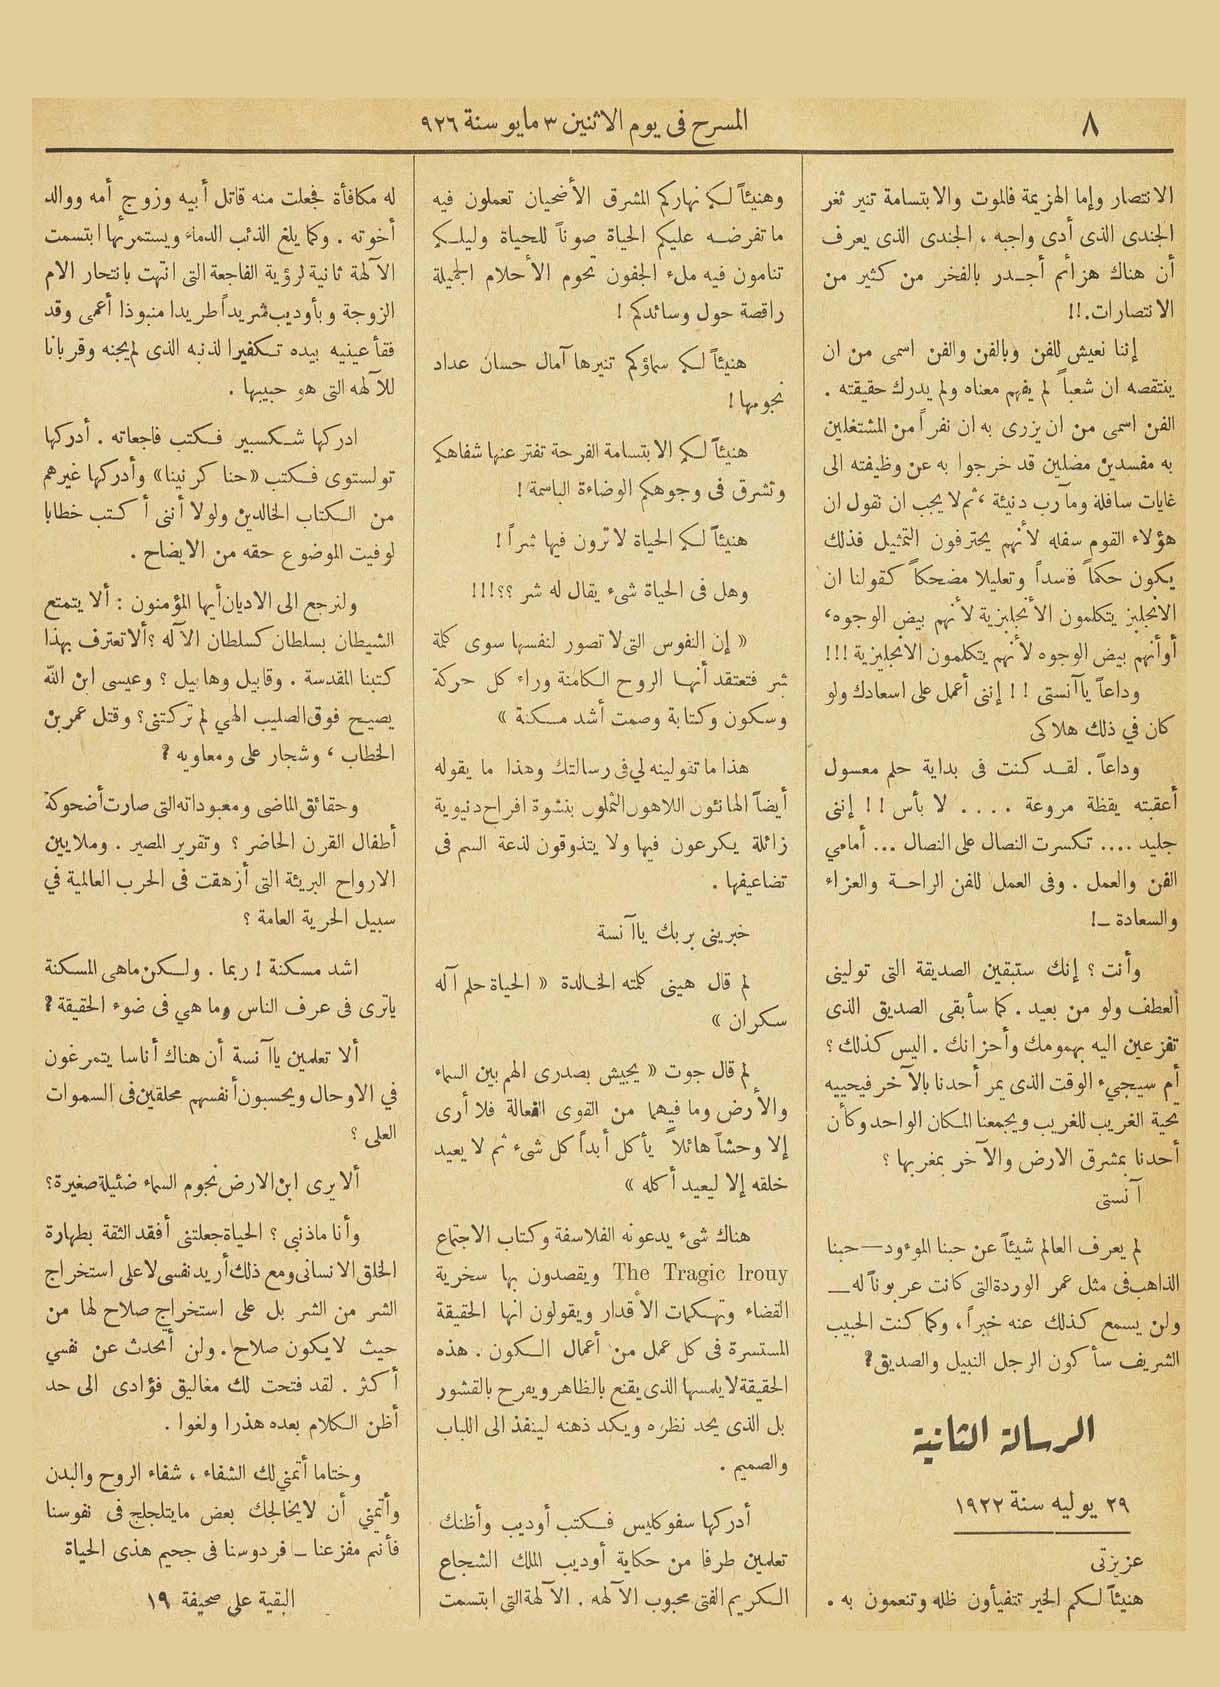 ٨
المسرح فى يوم الاثنين ٣ مايو سنة ٩٢٦
الانتصار وإما الهزيمة فالموت والابتسامة تنير ثغر
الجندى الذى أدى واجبه ، الجندى الذى يعرف
أن هناك هزائم أجدر بالفخر من كثير من
الانتصارات.!!
إننا نعيش للفن وبالفن والفن اسمى من ان
ينتقصه ان شعباً لم يفهم معناه ولم يدرك حقيقته .
الفن اسمى من ان يزرى به ان نفراً من المشتغلين
به مفسدين مضلين قد خرجوا به عن وظيفته الى
غايات سافلة ومآرب دنيئة ، ثم لا يجب ان نقول ان
هؤلاء القوم سفله لأنهم يحترفون التمثيل فذلك
يكون حكماً فاسداً وتعليلا مضحكاً كقولنا ان
الانجليز يتكلمون الأنجليزية لأنهم بيض الوجوه،
أوأنهم بيض الوجوه لأنهم يتكلمون الانجليزية !!!
وداعاً ياآنستى !! إننى أعمل على اسعادك ولو
كان في ذلك هلاكى
وداعاً . لقد كنت فى بداية حلم معسول
أعقبته يقظة مروعة .... لا بأس !! إننى
جليد .... تكسرت النصال على النصال ... أمامي
الفن والعمل . وفى العمل للفن الراحة والعزاء
والسعادة ـ!
وأنت ؟ إنك ستبقين الصديقة التى تولينى
العطف ولو من بعيد . كما سأبقى الصديق الذى
تفزعين اليه بهمومك وأحزانك . اليس كذلك ؟
أم سيجيء الوقت الذى يمر أحدنا بالآخر فيحييه
تحية الغريب للغريب ويجمعنا المكان الواحد وكأن
أحدنا بمشرق الارض والآخر بمغربها ؟
آنستى
لم يعرف العالم شيئاً عن حبنا الموءود — حبنا
الذاهب فى مثل عمر الوردة التى كانت عربوناً له ـ
ولن يسمع كذلك عنه خبراً ، وكما كنت الحبيب
الشريف سأكون الرجل النبيل والصديق؟
الرسالة الثانية
٢٩ يوليه سنة ١٩٢٢
عزيزتى
هنيئاً لكم الخير تتفيأون ظله وتنعمون به .
وهنيئاً لكم نهاركم المشرق الأضحيان تعملون فيه
ما تفرضه عليكم الحياة صوناً للحياة وليلكم
تنامون فيه ملء الجفون تحوم الأحلام الجميلة
راقصة حول وسائدكم !
هنيئاً لكم سماؤكم تنيرها آمال حسان عداد
نجومها !
هنيئاً لكم الابتسامة الفرحة تفتر عنها شفاهكم
وتشرق فى وجوهكم الوضاءة الباسمة !
هنيئاً لكم الحياة لا ترون فيها شراً !
وهل فى الحياة شىء يقال له شر ؟؟!!!
« إن النفوس التى لا تصور لنفسها سوى كلمة
شر فتعتقد أنها الروح الكامنة وراء كل حركة
وسكون وكتابة وصمت أشد مسكنة »
هذا ما تقولينه لي فى رسالتك وهذا ما يقوله
أيضاً الهانئون اللاهون الثملون بنشوة افراح دنيوية
زائلة يكرعون فيها ولا يتذوقون لذعة السم فى
تضاعيفها .
خبرينى بربك ياآنسة
لم قال هينى كلمته الخالدة « الحياة حلم آله
سكران »
لم قال جوت « يجيش بصدرى الهم بين السماء
والأرض وما فيهما من القوى الفعالة فلا أرى
إلا وحشاً هائلاً يأكل أبداً كل شىء ثم لا يعيد
خلقه إلا ليعيد أكله »
هناك شىء يدعونه الفلاسفة وكتاب الاجتماع
The Tragic lrouy ويقصدون بها سخرية
القضاء وتهكمات الأقدار ويقولون انها الحقيقة
المستسرة فى كل عمل من أعمال الكون . هذه
الحقيقة لا يلمسها الذى يقنع بالظاهر ويفرح بالقشور
بل الذى يحد نظره ويكد ذهنه لينفذ الى اللباب
والصميم .
أدركها سفوكليس فكتب أوديب وأظنك
تعلمين طرفا من حكاية أوديب الملك الشجاع
الكريم الفتى محبوب الآلهه . الآلهة التى ابتسمت
له مكافأة فجعلت منه قاتل أبيه وزوج أمه ووالد
أخوته . وكما يلغ الذئب الدماء ويستمرئها ابتسمت
الآلهة ثانية لرؤية الفاجعة التى انتهت بانتحار الام
الزوجة وبأوديب شريداً طريدا منبوذا أعمى وقد
فقأ عينيه بيده تكفيرا لذنبه الذى لم يجنه وقربانا
للآلهه التى هو حبيبها .
ادركها شكسبير فكتب فاجعاته . أدركها
تولستوى فكتب «حنا كرنينا» وأدركها غيرهم
من الكتاب الخالدين ولولا أننى أكتب خطابا
لوفيت الموضوع حقه من الايضاح .
ولنرجع الى الاديان أيها المؤمنون : ألا يتمتع
الشيطان بسلطان كسلطان الآله ؟ ألا تعترف بهذا
كتبنا المقدسة . وقابيل وهابيل ؟ وعيسى ابن الله
يصيح فوق الصليب الهي لم تركتنى؟ وقتل عمر بن
الخطاب ، وشجار على ومعاويه ؟
وحقائق الماضى ومعبوداته التى صارت أضحوكة
أطفال القرن الحاضر ؟ وتقرير المصير . وملايين
الارواح البريئة التى أزهقت فى الحرب العالمية في
سبيل الحرية العامة ؟
اشد مسكنة ! ربما . ولكن ماهى المسكنة
ياترى فى عرف الناس وما هي فى ضوء الحقيقة ؟
ألا تعلمين ياآنسة أن هناك أناسا يتمرغون
في الاوحال ويحسبون أنفسهم محلقين فى السموات
العلى ؟
ألا يرى ابن الارض نجوم السماء ضئيلة صغيرة؟
وأنا ماذنبى ؟ الحياة جعلتنى أفقد الثقة بطهارة
الخلق الانسانى ومع ذلك أريد نفسى لا على استخراج
الشر من الشر بل على استخراج صلاح لها من
حيث لا يكون صلاح . ولن أتحدث عن نفسي
أكثر . لقد فتحت لك مغاليق فؤادى الى حد
أظن الكلام بعده هذرا ولغوا .
وختاما أتمنى لك الشفاء ، شفاء الروح والبدن
وأتمنى أن لا يخالجك بعض ما يتلجلج فى نفوسنا
فأنتم مفزعنا ـ فردوسنا فى جحيم هذى الحياة
البقية على صحيفة ١٩